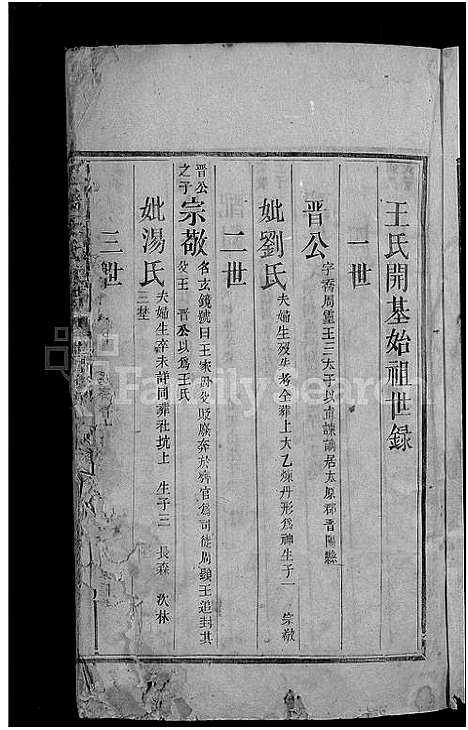 王氏開基始祖世録
一世
晋公 字喬周靈王三太子以直諫謫居太原郡晋陽縣
妣劉氏 夫婦生殁失考仝葬上大乙煉丹形為神生子一 宗敬
二世
晋公之子宗敬 名玄鏡號曰王家因父貶廢奔於齊官為司徒周顯王追封其父王 晋公以為王氏
妣湯氏 夫婦生卒未詳同葬社坑上 生子三 長森 次林 三埜
三世
FamilySearch